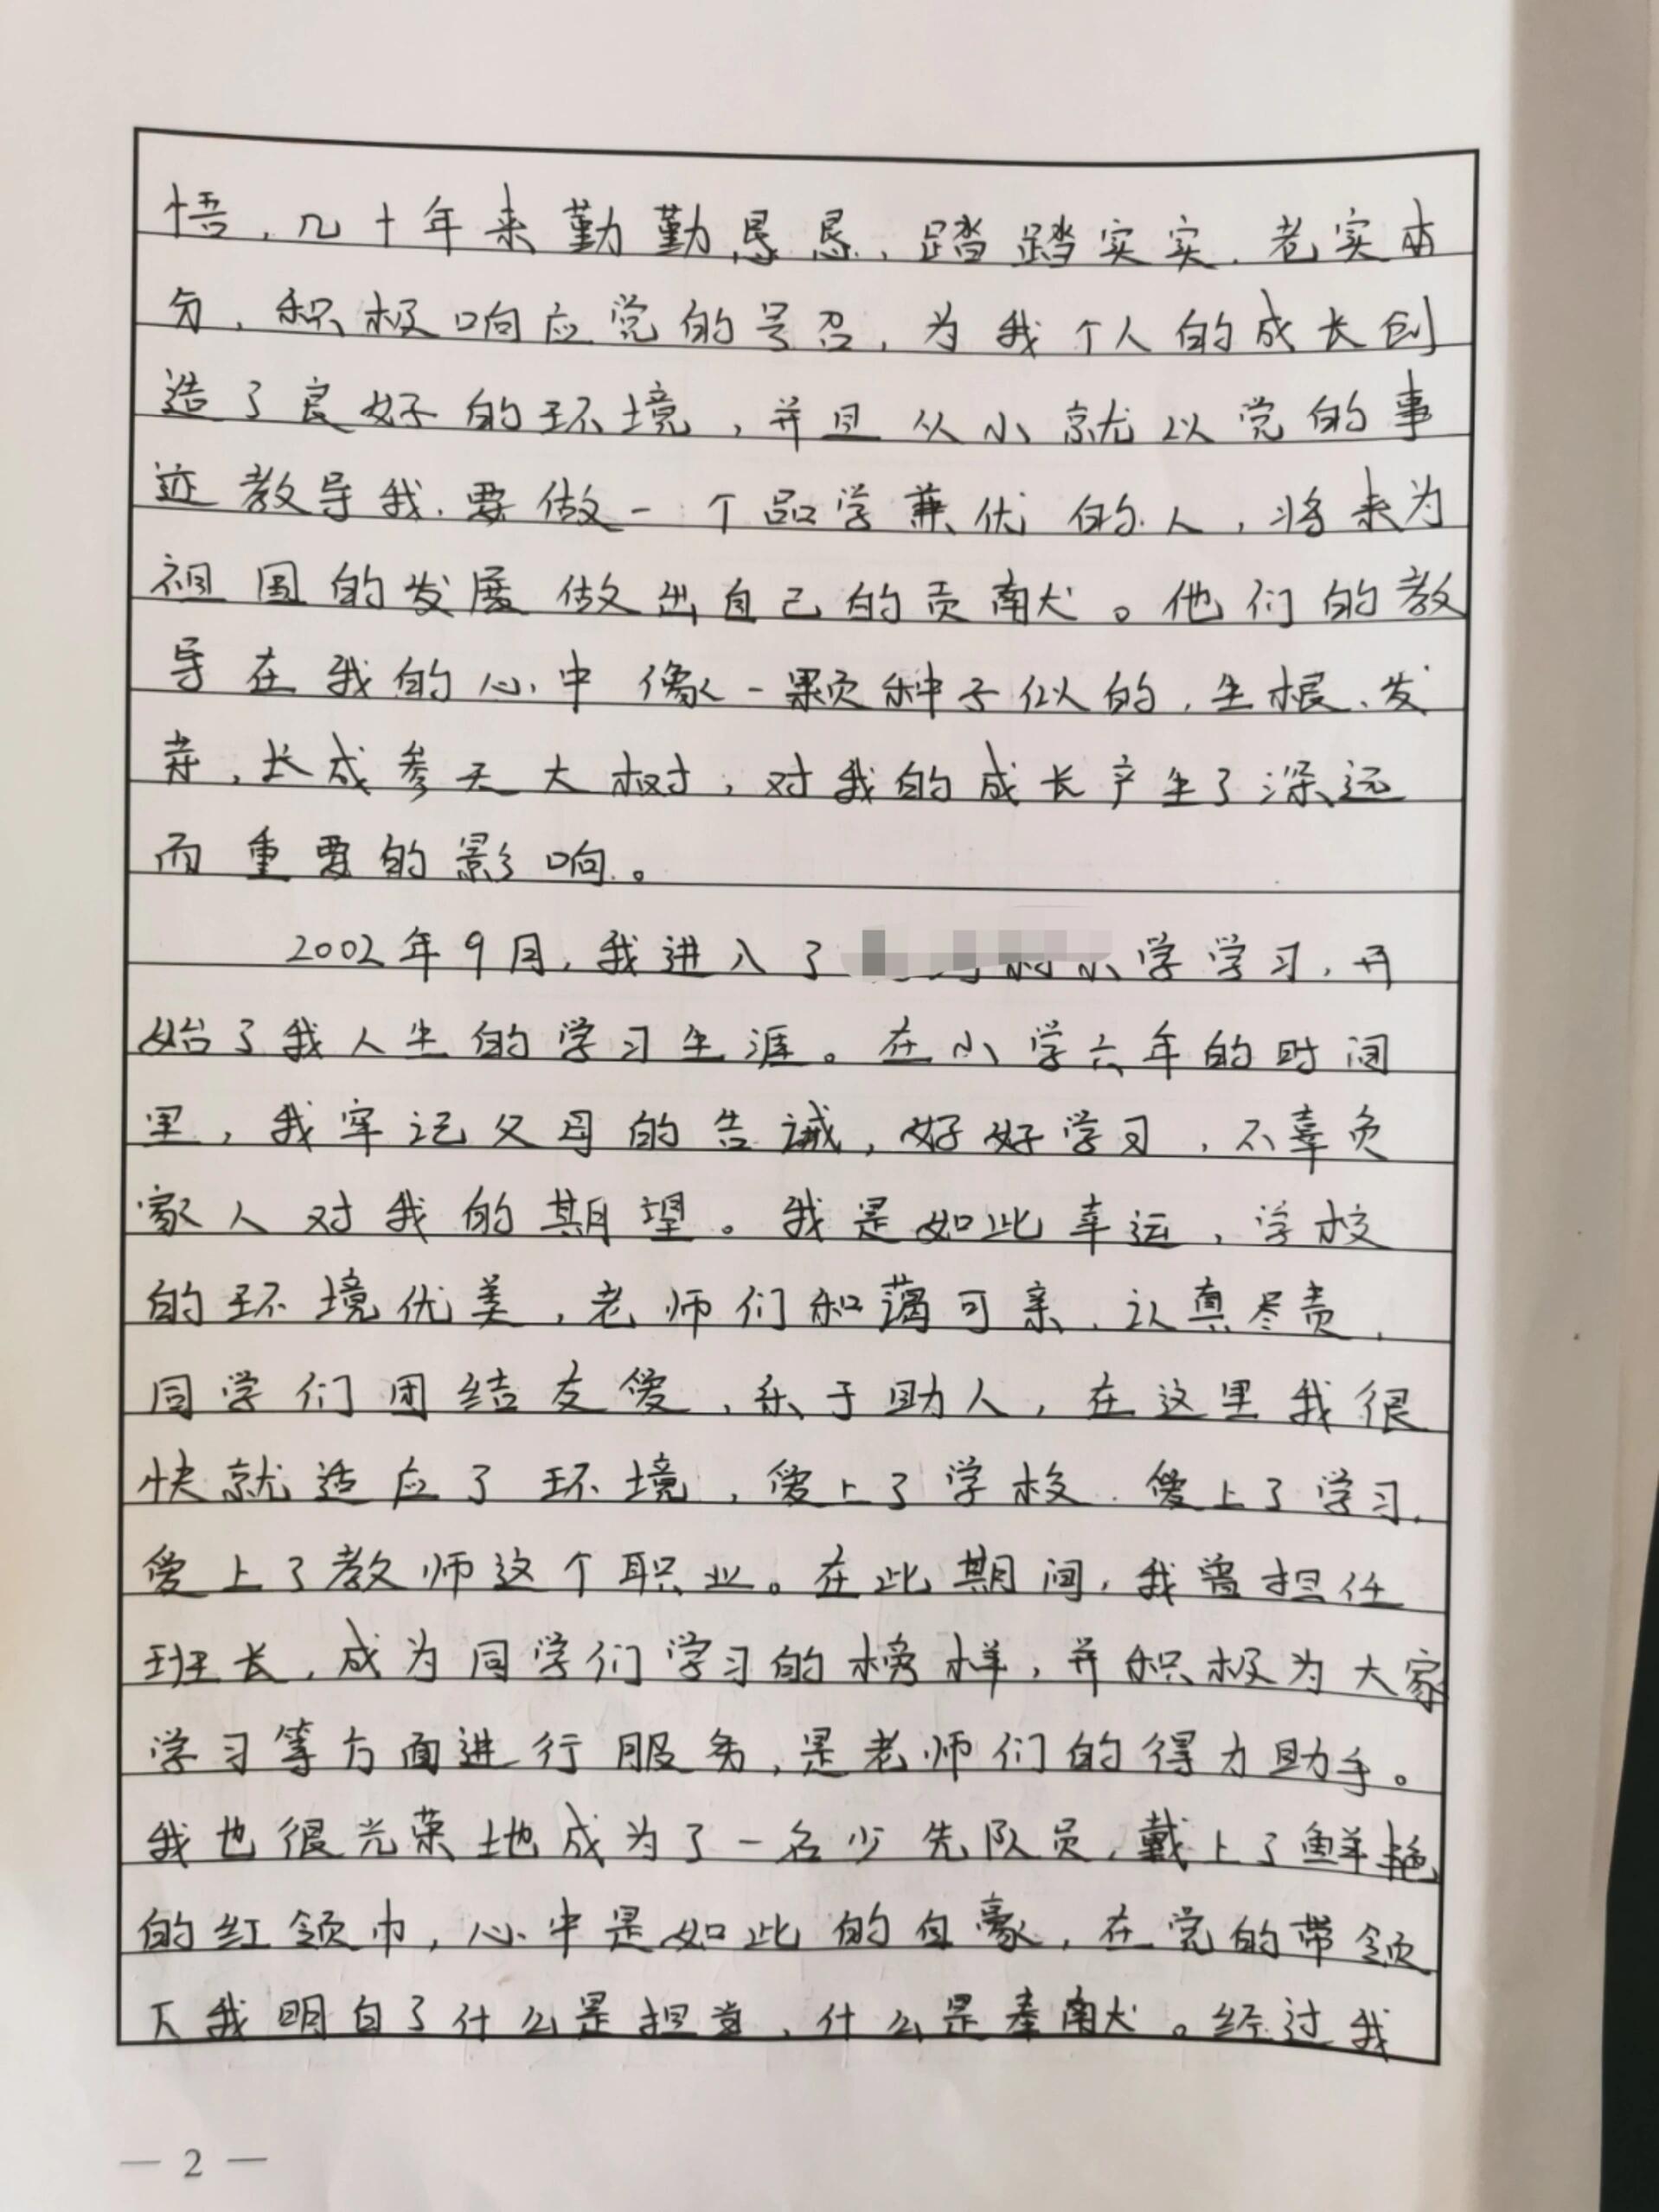 悟,几十年来勤勤恳恳、踏踏实实、老实本
分,积极响应党的号召,为我个人的成长创
造了良好的环境,并且从小就以党的事
迹教导我,要做一个品学兼优的人,将来为
祖国的发展做出自己的贡献。他们的教
导在我的心中像一颗种子似的,生根、发
芽,长成参天大树,对我的成长产生了深远
而重要的影响。
2002年9月,我进入了小学学习,开
始了我人生的学习生涯。在小学六年的时间
里,我牢记父母的告诫,好好学习,不辜负
家人对我的期望。我是如此幸运,学校
的环境优美,老师们和蔼可亲、认真尽责,
同学们团结友爱,乐于助人,在这里我很
快就适应了环境,爱上了学校、爱上了学习,
爱上了教师这个职业。在此期间,我曾担任
班长,成为同学们学习的榜样,并积极为大家
学习等方面进行服务,是老师们的得力助手。
我也很光荣地成为了一名少先队员,戴上了鲜艳
的红领巾,心中是如此的自豪,在党的带领
下我明白了什么是担当,什么是奉献。经过我
— 2 —